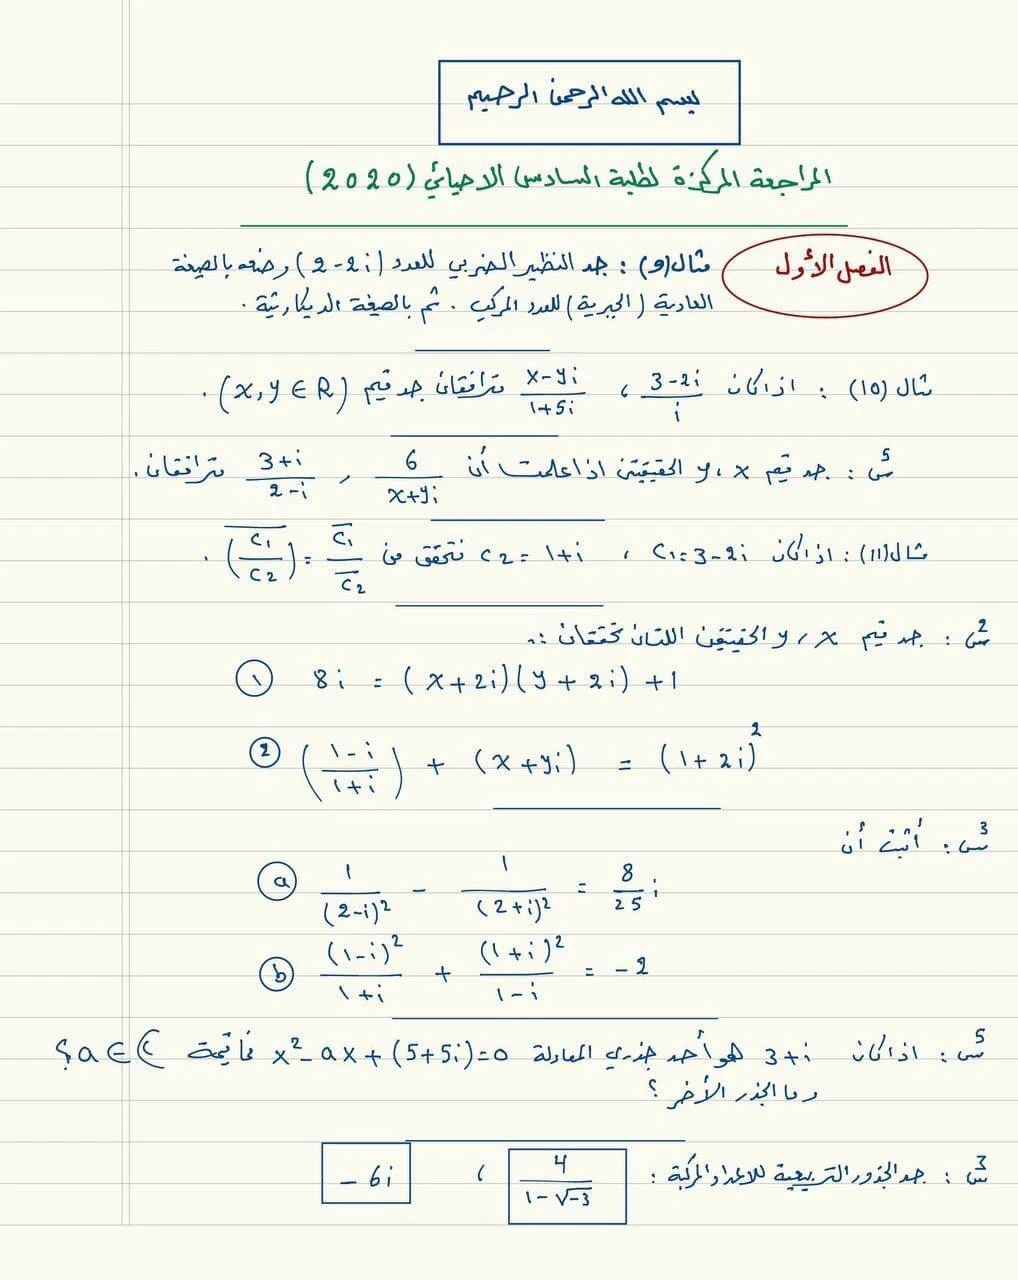 بسم الله الرحمن الرحيم
المراجعة المركزة لطلبة السادس الاحيائي (2020)
الفصل الأول
مثال(9) : جد النظير الضربي للعدد (2-2i) وضعه بالصيغة
العادية (الجبرية) للعدد المركب . ثم بالصيغة الديكارتية .
مثال (10) : اذا كان (3-2i)/i ، (x-yi)/(1+5i) مترافقان جد قيم (x,y ∈ R) .
س5 : جد قيم x ، y الحقيقيتين اذا علمت أن 6/(x+yi) , (3+i)/(2-i) مترافقان .
مثال(11) : اذا كان c1=3-2i ، c2=1+i فتحقق من \overline{(c1/c2)} = \overline{c1}/\overline{c2} .
س2 : جد قيم x ، y الحقيقيتين اللتان تحققان :
① 8i = (x+2i)(y+2i)+1
② ((1-i)/(1+i)) + (x+yi) = (1+2i)²
س3 : أثبت أن
ⓐ 1/(2-i)² - 1/(2+i)² = 8/25 i
ⓑ (1-i)²/(1+i) + (1+i)²/(1-i) = -2
س5 : اذا كان 3+i هو أحد جذري المعادلة x²-ax+(5+5i)=0 فما قيمة a∈ℂ ؟
وما الجذر الأخر ؟
س3 : جد الجذور التربيعية للاعداد المركبة : 4/(1-√-3) ، -6i